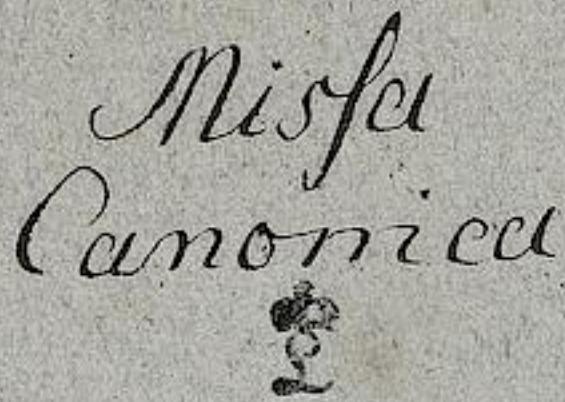 Missa
Canonica
L